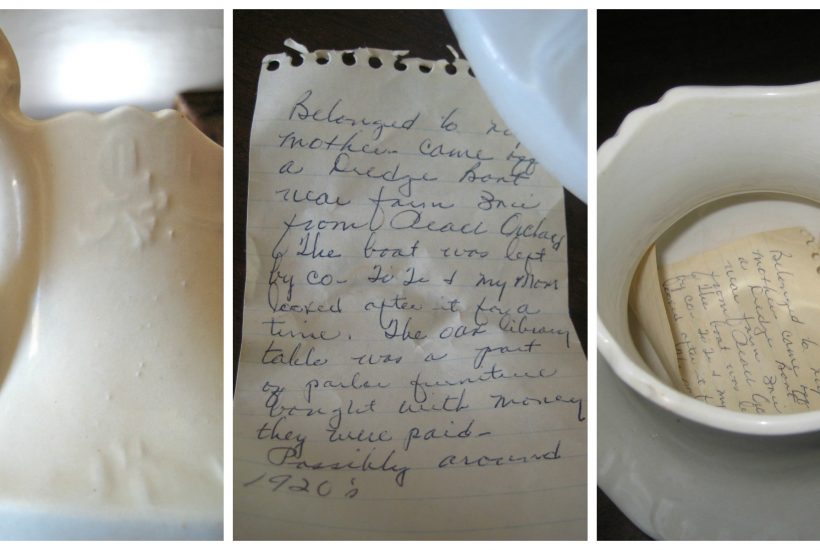 Belonged to my
mother came off
a Dredge Boat
near farm 3mi
from
The boat was left
by co. & my Mom
looked after it for a
time. The oak library
table was a part
of parlor furniture
bought with money
they were paid-
Possibly around
1920's
Belonged to my
mother came off
a Dredge Boat
near farm 3mi
from
The boat was
by co. & my